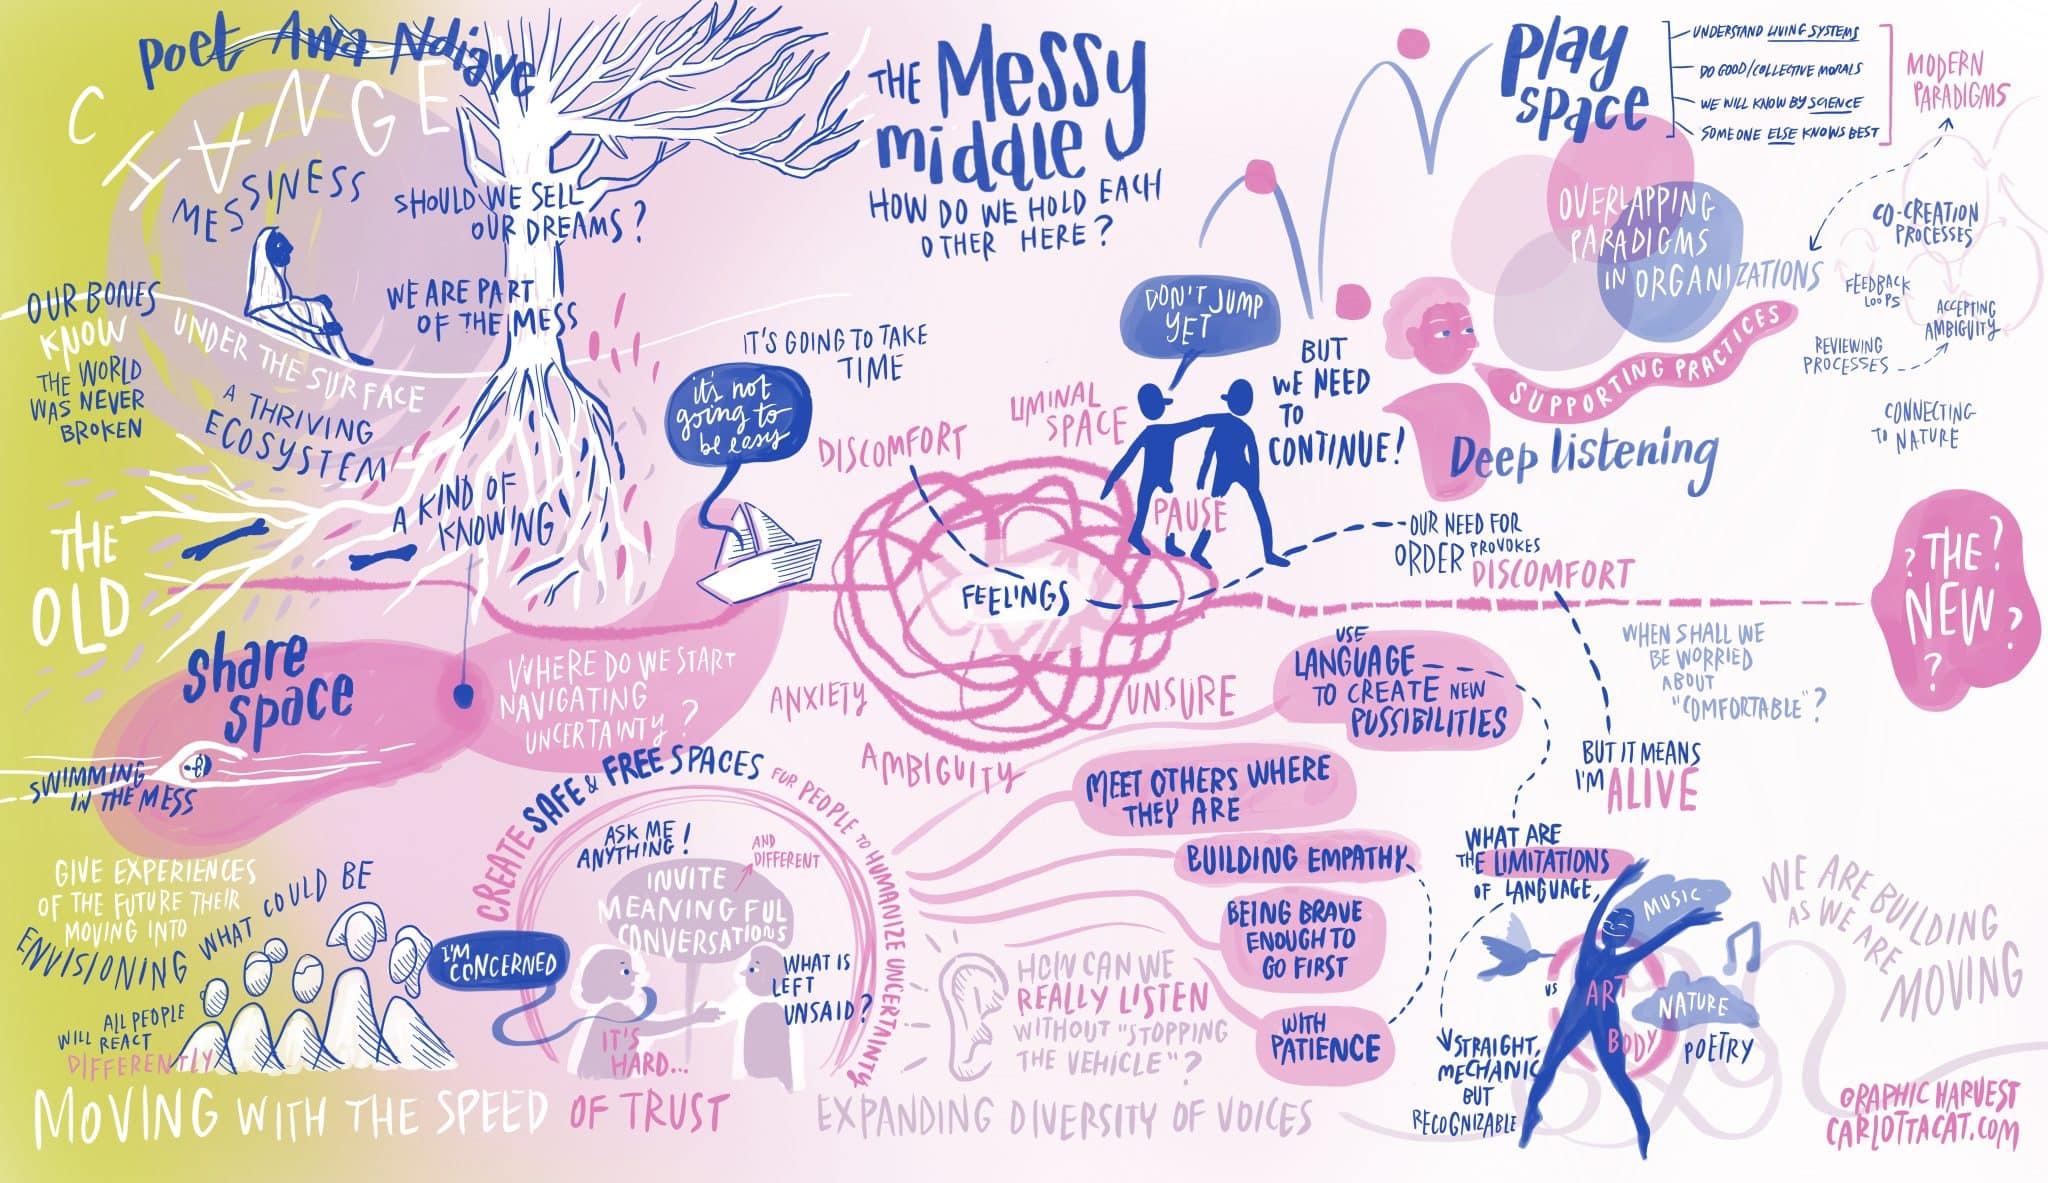 Poet Awa Ndiaye
CHANGE
MESSINESS
SHOULD WE SELL
OUR DREAMS?
WE ARE PART
OF THE MESS
OUR BONES
KNOW
THE WORLD
WAS NEVER
BROKEN
UNDER THE SURFACE
A THRIVING
ECOSYSTEM
A KIND OF
KNOWING
THE
OLD
THE Messy
middle
HOW DO WE HOLD EACH
OTHER HERE?
IT'S GOING TO TAKE
TIME
it's not
going to
be easy
DISCOMFORT
LIMINAL
SPACE
DON'T JUMP
YET
BUT
WE NEED
TO
CONTINUE!
PAUSE
FEELINGS
ANXIETY
UNSURE
AMBIGUITY
play
space
UNDERSTAND LIVING SYSTEMS
DO GOOD/COLLECTIVE MORALS
WE WILL KNOW BY SCIENCE
SOMEONE ELSE KNOWS BEST
MODERN
PARADIGMS
OVERLAPPING
PARADIGMS
IN ORGANIZATIONS
CO-CREATION
PROCESSES
FEEDBACK
LOOPS
ACCEPTING
AMBIGUITY
REVIEWING
PROCESSES
CONNECTING
TO NATURE
SUPPORTING PRACTICES
Deep listening
OUR NEED FOR
ORDER PROVOKES
DISCOMFORT
BUT IT MEANS
I'M ALIVE
WHEN SHALL WE
BE WORRIED
ABOUT
"COMFORTABLE"?
? THE ?
NEW ?
?
share
space
WHERE DO WE START
NAVIGATING
UNCERTAINTY?
SWIMMING
IN THE MESS
GIVE EXPERIENCES
OF THE FUTURE THEIR
MOVING INTO
ENVISIONING WHAT COULD BE
ALL PEOPLE
WILL REACT
DIFFERENTLY
CREATE SAFE & FREE SPACES FUR PEOPLE TO HUMANIZE UNCERTAINTY
ASK ME
ANYTHING!
AND
DIFFERENT
INVITE
MEANINGFUL
CONVERSATIONS
I'M
CONCERNED
WHAT IS
LEFT
UNSAID?
IT'S
HARD...
MOVING WITH THE SPEED OF TRUST
USE
LANGUAGE
TO CREATE NEW
PUSSIBILITIES
MEET OTHERS WHERE
THEY ARE
BUILDING EMPATHY
BEING BRAVE
ENOUGH TO
GO FIRST
WITH
PATIENCE
HOW CAN WE
REALLY LISTEN
WITHOUT "STOPPING
THE VEHICLE"?
EXPANDING DIVERSITY OF VOICES
WHAT ARE
THE LIMITATIONS
OF LANGUAGE,
STRAIGHT,
MECHANIC
BUT
RECOGNIZABLE
VS
MUSIC
ART
NATURE
BODY
POETRY
WE ARE BUILDING
AS WE ARE
MOVING
GRAPHIC HARVEST
CARLOTTACAT.COM